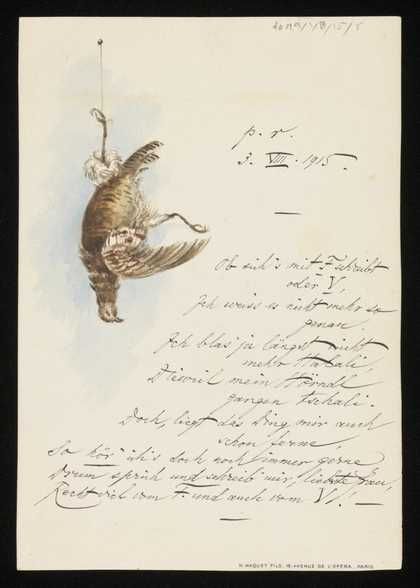 p. r.
3. VIII. 1915.
Ob sich's mit F schreibt
oder V,
Ich weiss es nicht mehr so
genau.
Ich blas' ja längst nicht
mehr Halali,
Dieweil mein Hörndl
gangen tschali.
Doch, liegt das Ding mir auch
schon ferne,
So hör' ich's doch noch immer gerne
Drum sprich und schreib mir, liebste Frau,
Recht viel vom F und auch vom V! –
H. MAQUET FILS, 10. AVENUE DE L'OPERA, PARIS